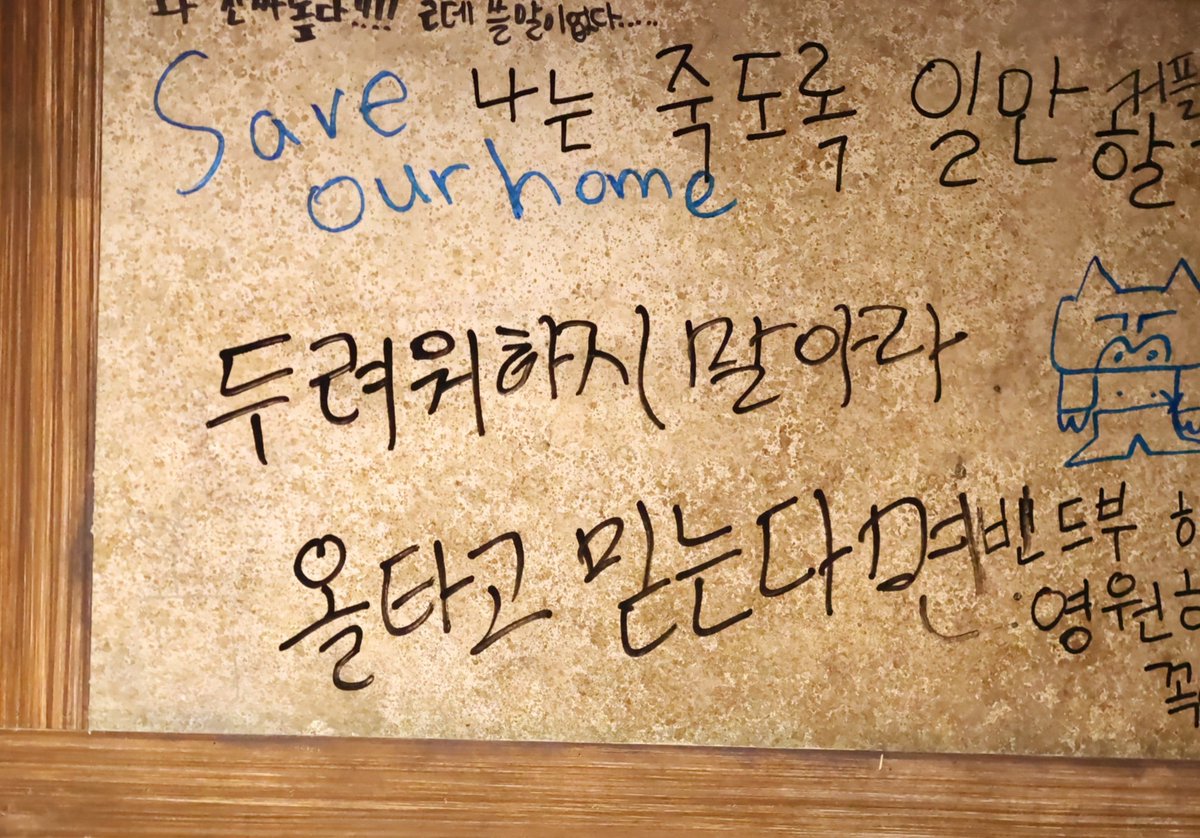 와 진짜높다!!!! 근데 쓸말이없다.....
Save our home
나는 죽도록 일만
커플
할
두려워하지 말아라
올타고 믿는다면
밴드부
영원
꼭